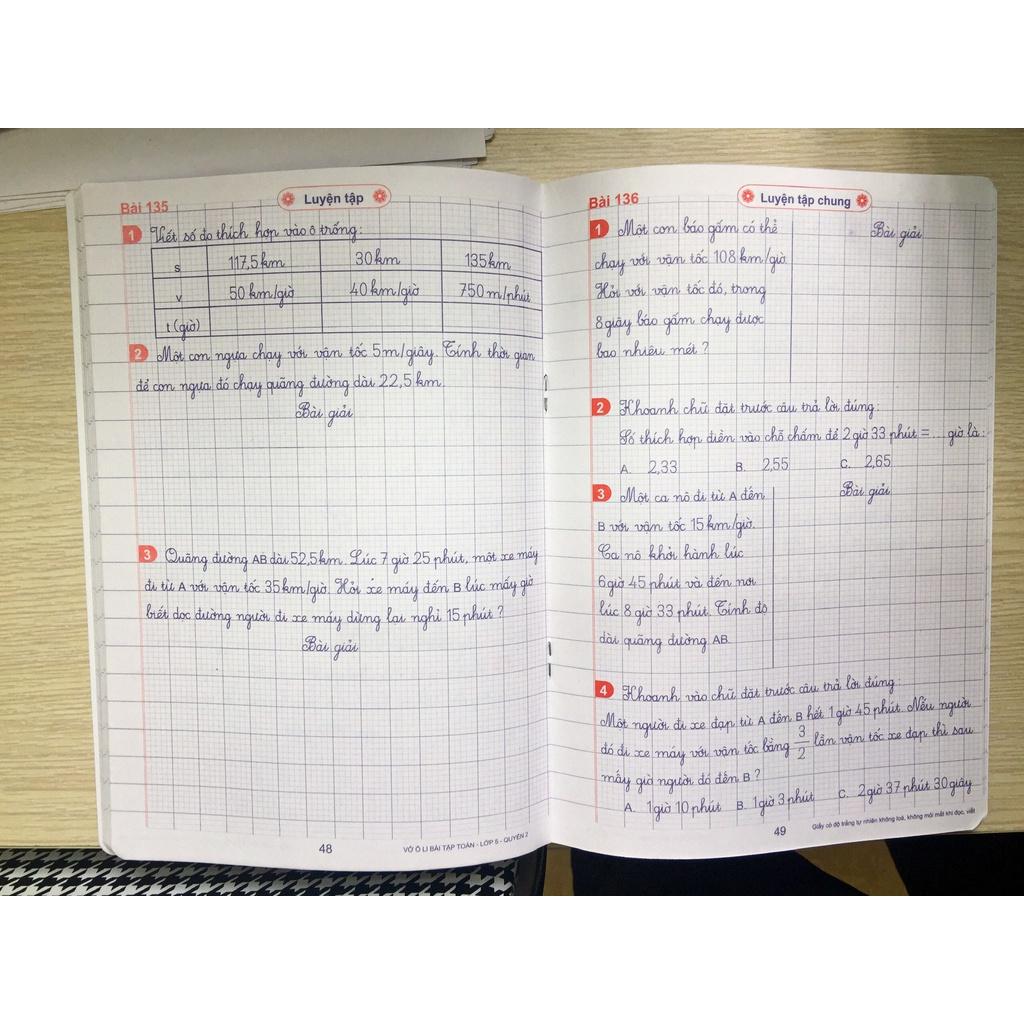 Bài 135
Luyện tập
1 Viết số đo thích hợp vào ô trống:
s 117,5km 30km 135km
v 50 km/giờ 40 km/giờ 750 m/phút
t (giờ)
2 Một con ngựa chạy với vận tốc 5m/giây. Tính thời gian
để con ngựa đó chạy quãng đường dài 22,5 km.
Bài giải
3 Quãng đường AB dài 52,5km. Lúc 7 giờ 25 phút, một xe máy
đi từ A với vận tốc 35km/giờ. Hỏi xe máy đến B lúc mấy giờ
biết dọc đường người đi xe máy dừng lại nghỉ 15 phút?
Bài giải
48
VỞ Ô LI BÀI TẬP TOÁN - LỚP 5 - QUYỂN 2
Bài 136
Luyện tập chung
1 Một con báo gấm có thể
chạy với vận tốc 108 km/giờ.
Hỏi với vận tốc đó, trong
8 giây báo gấm chạy được
bao nhiêu mét?
Bài giải
2 Khoanh chữ đặt trước câu trả lời đúng:
Số thích hợp điền vào chỗ chấm để 2 giờ 33 phút = ... giờ là:
A. 2,33 B. 2,55 C. 2,65
3 Một ca nô đi từ A đến
B với vận tốc 15 km/giờ.
Ca nô khởi hành lúc
6 giờ 45 phút và đến nơi
lúc 8 giờ 33 phút. Tính độ
dài quãng đường AB.
Bài giải
4 Khoanh vào chữ đặt trước câu trả lời đúng:
Một người đi xe đạp từ A đến B hết 1 giờ 45 phút. Nếu người
đó đi xe máy với vận tốc bằng 3/2 lần vận tốc xe đạp thì sau
mấy giờ người đó đến B?
A. 1 giờ 10 phút B. 1 giờ 3 phút C. 2 giờ 37 phút 30 giây
49
Giấy có độ trắng tự nhiên không loá, không mỏi mắt khi đọc, viết